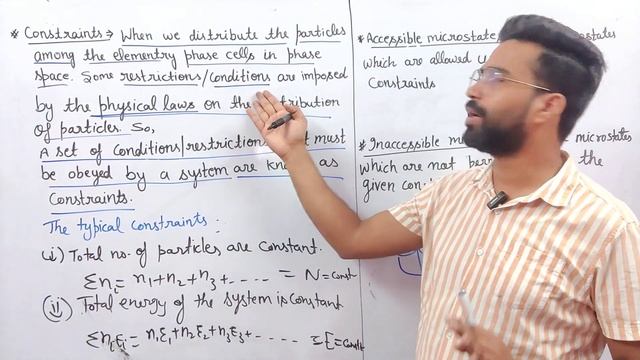 * Constraints → When we distribute the particles
among the elementry phase cells in phase
space. Some restrictions/conditions are imposed
by the physical laws on the
of particles. So,
A set of conditions/restrictions must
be obeyed by a system are known as
Constraints.
The typical constraints:
(i) Total no. of particles are constant.
Σni = n1+n2+n3+----- = N=const
(ii) Total energy of the system is constant
ΣniEi = n1ε1+n2ε2+n3ε3+----- = E=const
* Accessible microstate
which are allowed
Constraints
* Inaccessible microstates
which are not the
given